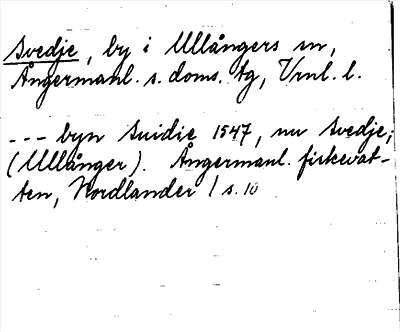 Svedje, by i Ullångers sn,
Ångermanl. s. doms. tg, Vrnl. l.
--- byn Suidie 1547, nu Svedje;
(Ullånger). Ångermanl. fiskevat-
ten, Nordlander 1 s. 10